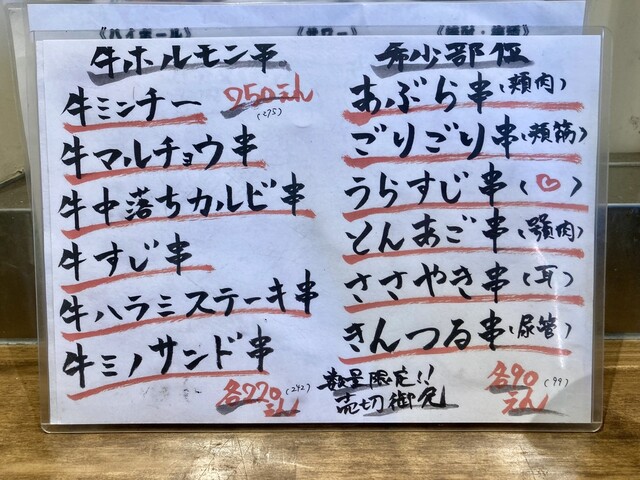 《ハイボール》
《サワー》
牛ホルモン串
牛ミンチー 250えん
(275)
牛マルチョウ串
牛中落ちカルビ串
牛すじ串
牛ハラミステーキ串
牛ミノサンド串
各220えん (242)
希少部位
あぶら串(頬肉)
ごりごり串(頬筋)
うらすじ串(♡)
とんあご串(顎肉)
ささやき串(耳)
きんつる串(尿管)
数量限定!!
売切御免
各90えん (99)